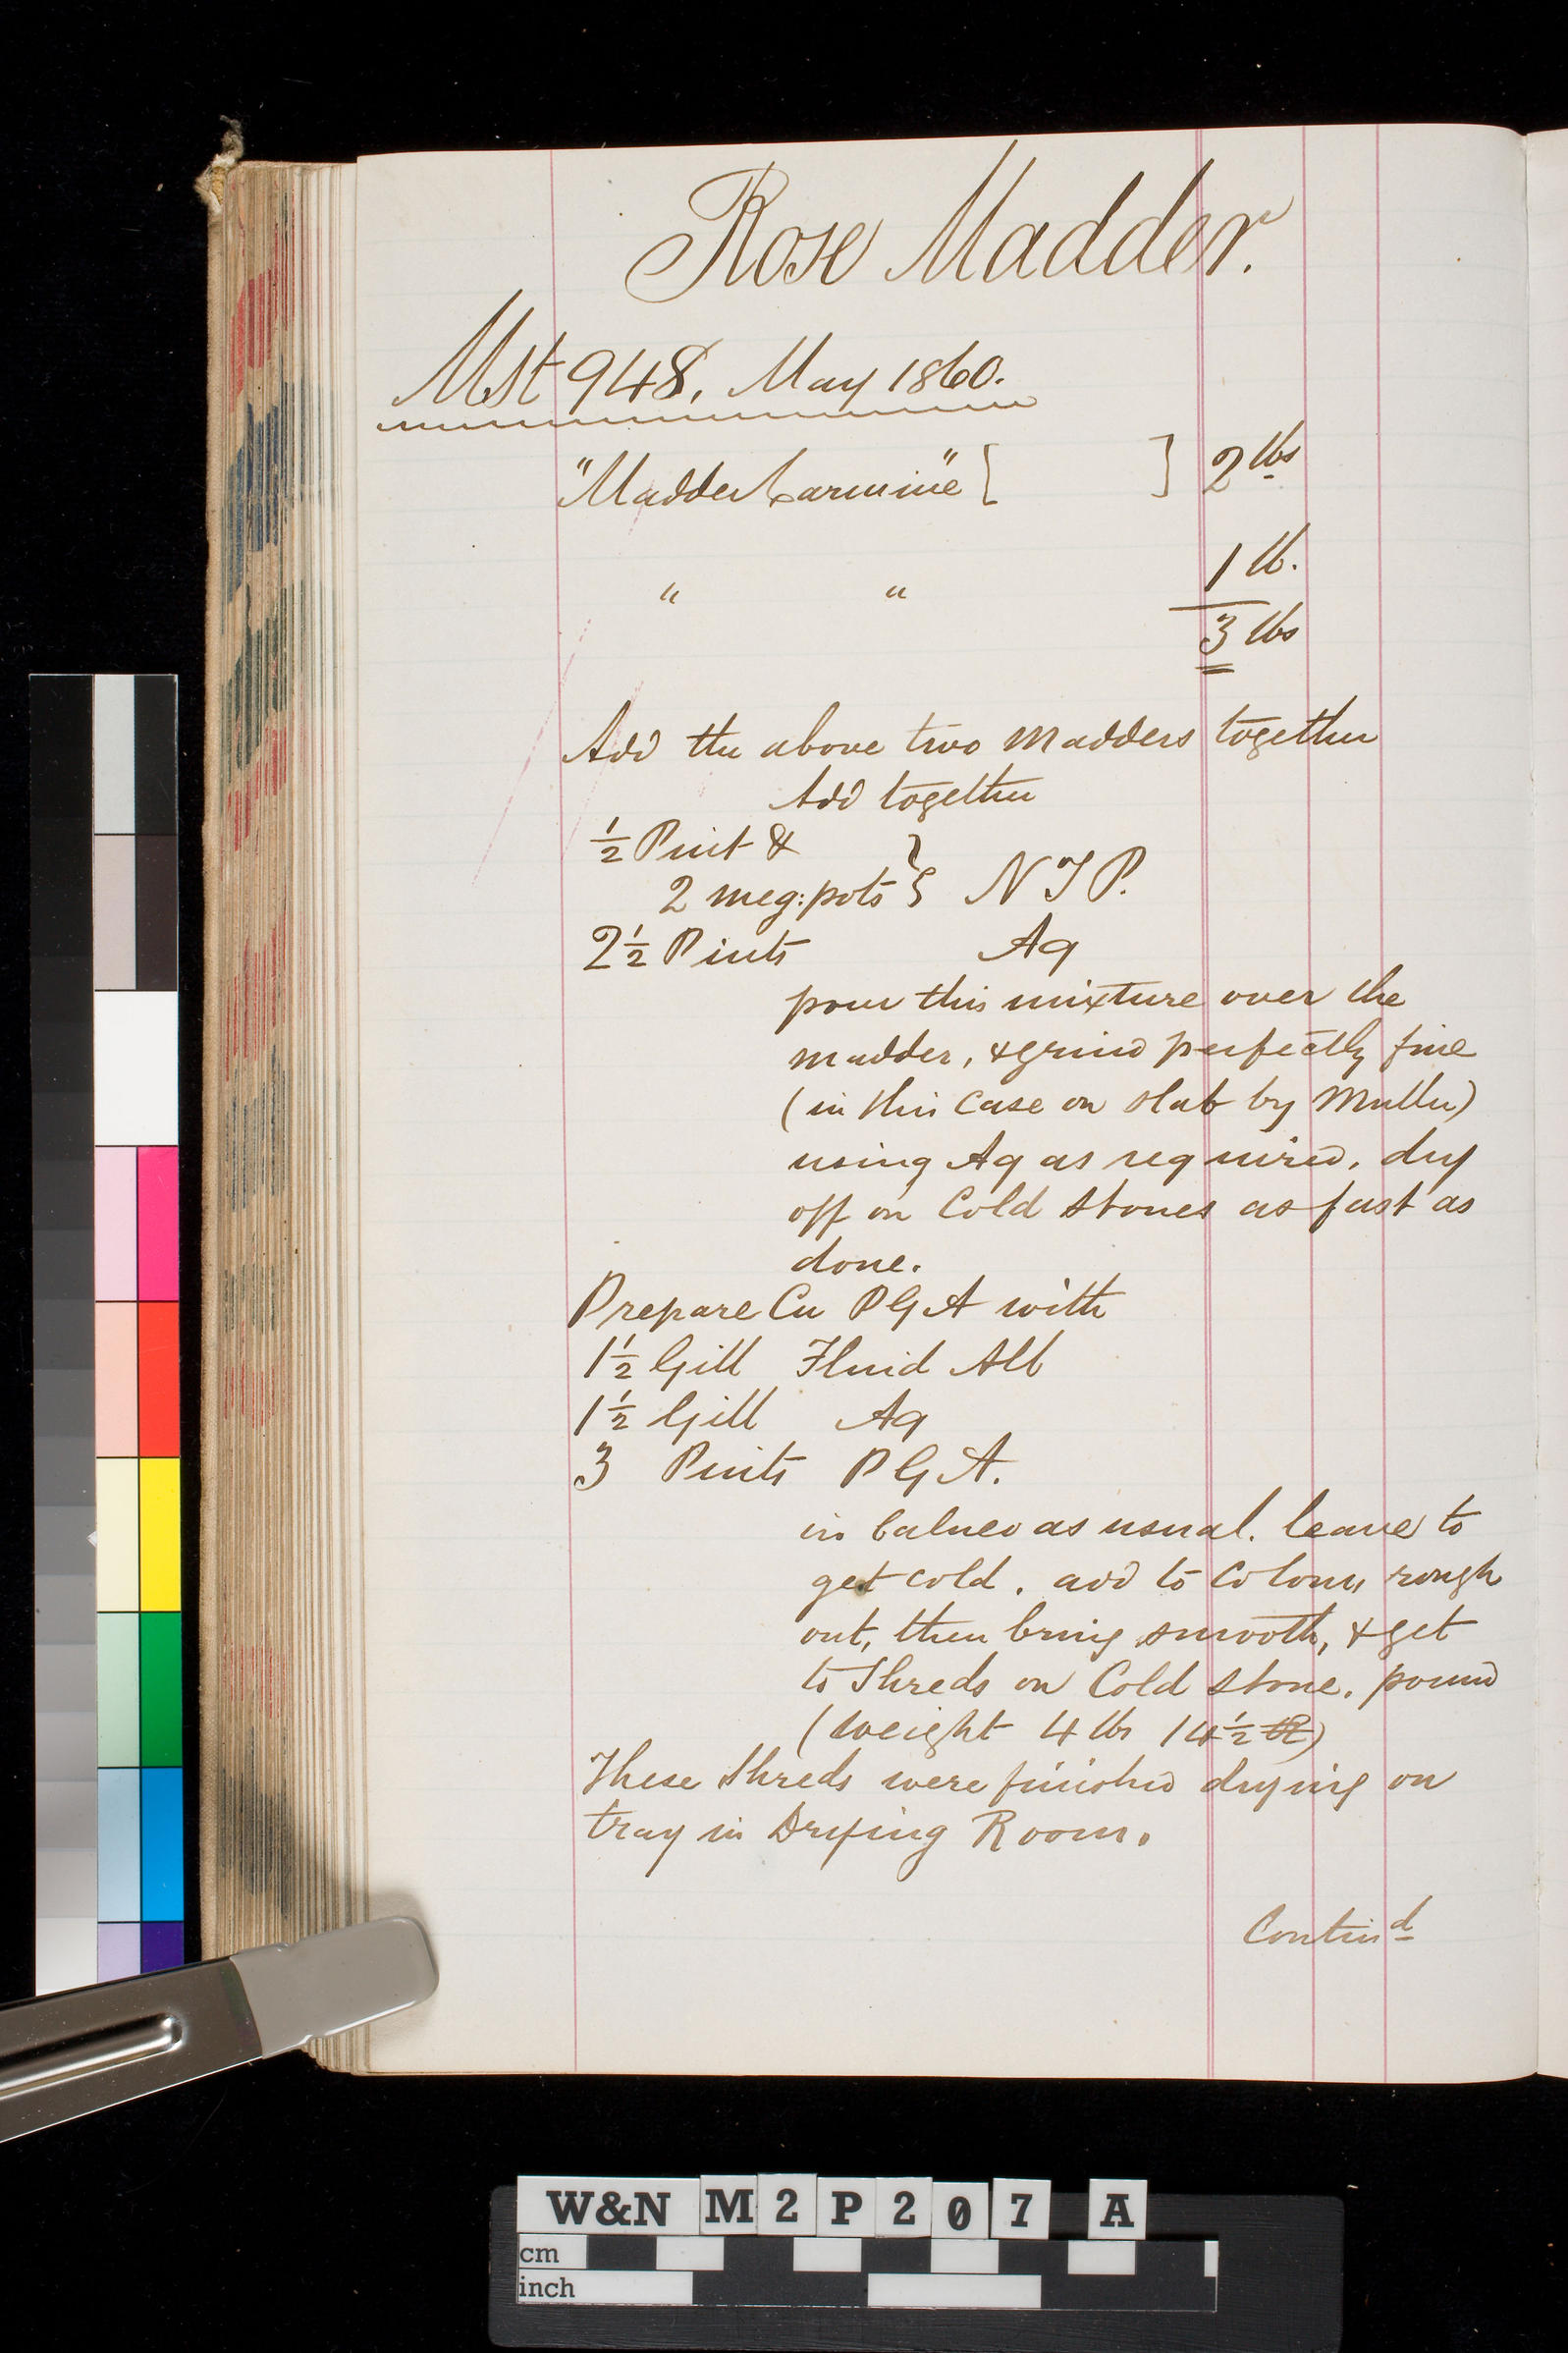 Rose Madder.
Mst 948, May 1860.
"Madder Carmine" [ ] 2 lbs
" " 1 lb.
3 lbs
Add the above two Madders together
Add together
½ Pint &
2 meg: pots } N J P.
2½ Pints Aq
pour this mixture over the
madder, & grind perfectly fine
(in this case on slab by Muller)
using Aq as required. dry
off on Cold Stones as fast as
done.
Prepare Cu P G A with
1½ Gill Fluid Alb
1½ Gill Aq
3 Pints P G A.
in balneo as usual. leave to
get cold. add to Colour, rough
out, then bring smooth, & get
to Shreds on Cold Stone. pound
(weight 4 lbs 14½
These Shreds were finished drying on
tray in Drying Room.
Contind
W&N M2P207 A
cm
inch